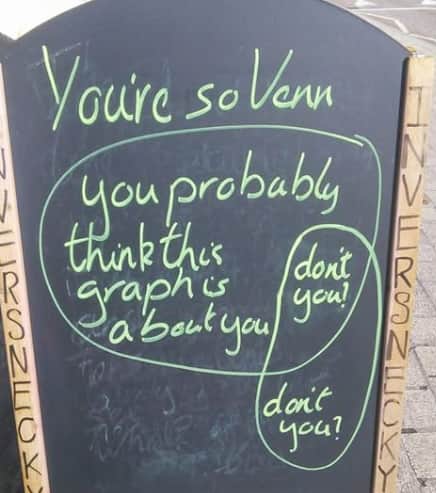 You're so Venn
you probably
think this
graph is
about you
don't
you?
don't
you?
INVERSNECKY
INVERSNECKY